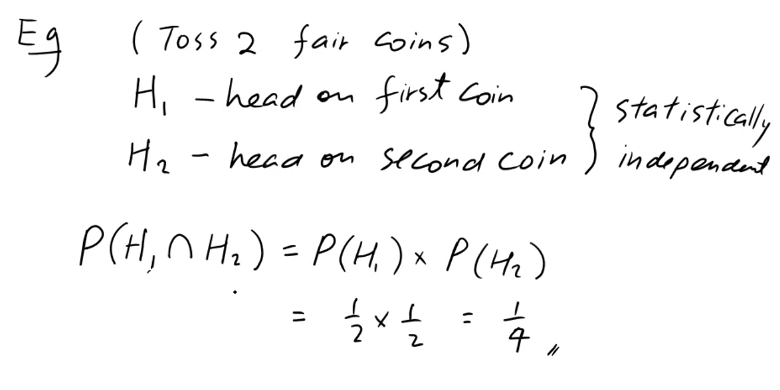 Eg (Toss 2 fair coins)
H₁ – head on first coin
H₂ – head on second coin } statistically independent
P(H₁ ∩ H₂) = P(H₁) × P(H₂)
= 1/2 × 1/2 = 1/4 〃